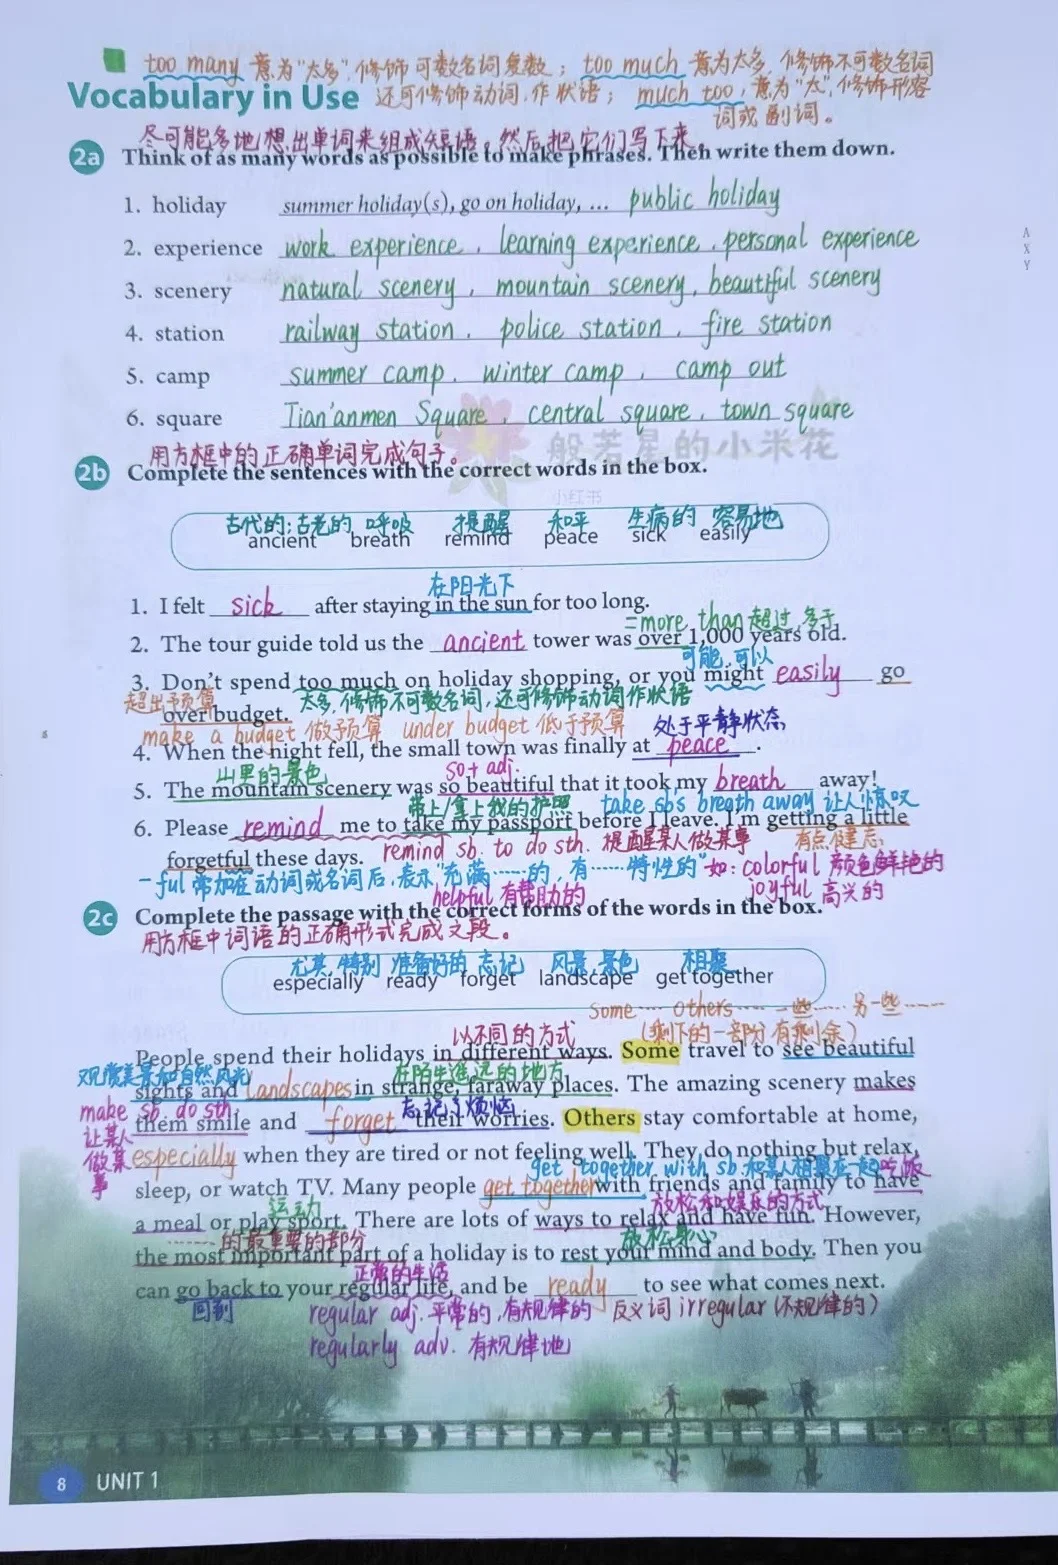 too many 意为“太多”，修饰可数名词复数；too much 意为太多，修饰不可数名词
Vocabulary in Use 还可修饰动词，作状语；much too，意为“太”，修饰形容
词或副词。
尽可能多地想出单词来组成短语。然后把它们写下来。
2a Think of as many words as possible to make phrases. Then write them down.
1. holiday summer holiday(s), go on holiday, … public holiday
2. experience work experience, learning experience, personal experience
3. scenery natural scenery, mountain scenery, beautiful scenery
4. station railway station, police station, fire station
5. camp summer camp, winter camp, camp out
6. square Tian'anmen Square, central square, town square
般若星的小米花
用方框中的正确单词完成句子。
2b Complete the sentences with the correct words in the box.
小红书
古代的；古老的 呼吸 提醒 和平 生病的 容易地
ancient breath remind peace sick easily
在阳光下
1. I felt sick after staying in the sun for too long.
=more than 超过，多于
2. The tour guide told us the ancient tower was over 1,000 years old.
可能，可以
3. Don't spend too much on holiday shopping, or you might easily go
超出预算 太多，修饰不可数名词，还可修饰动词作状语
over budget.
make a budget 做预算 under budget 低于预算 处于平静状态
4. When the night fell, the small town was finally at peace.
山里的景色 so+ adj.
5. The mountain scenery was so beautiful that it took my breath away!
带上/拿上我的护照 take sb's breath away 让人惊叹
6. Please remind me to take my passport before I leave. I'm getting a little
remind sb. to do sth. 提醒某人做某事 有点健忘
forgetful these days.
-ful 常加在动词或名词后，表示“充满……的，有……特性的”如：colorful 颜色鲜艳的
helpful 有帮助的 joyful 高兴的
2c Complete the passage with the correct forms of the words in the box.
用方框中词语的正确形式完成文段。
尤其，特别 准备好的 忘记 风景，景色 相聚
especially ready forget landscape get together
Some…… others…… 一些…… 另一些……
以不同的方式 （剩下的一部分有剩余）
People spend their holidays in different ways. Some travel to see beautiful
观赏美景和自然风光 在陌生遥远的地方
sights and landscapes in strange, faraway places. The amazing scenery makes
make sb. do sth. 忘记了烦恼
them smile and forget their worries. Others stay comfortable at home,
让某人做某事
especially when they are tired or not feeling well. They do nothing but relax,
get together with sb. 和某人相聚在一起 吃饭
sleep, or watch TV. Many people get together with friends and family to have
运动 放松和娱乐的方式
a meal or play sport. There are lots of ways to relax and have fun. However,
……的最重要的部分 放松身心
the most important part of a holiday is to rest your mind and body. Then you
正常的生活
can go back to your regular life, and be ready to see what comes next.
回到 regular adj. 平常的，有规律的 反义词 irregular（不规律的）
regularly adv. 有规律地
8 UNIT 1
A
X
Y